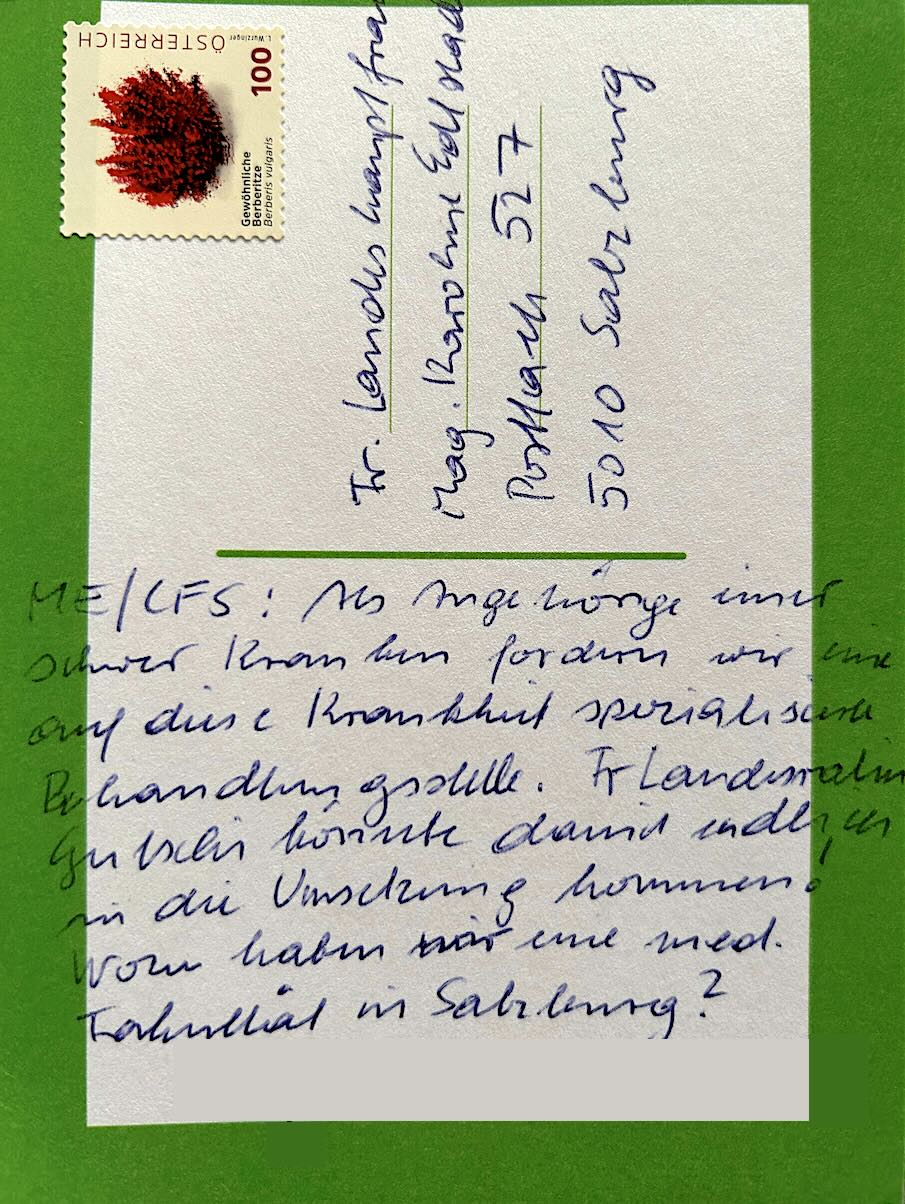 ÖSTERREICH
L. Wurzinger
100
Gewöhnliche
Berberitze
Berberis vulgaris
Fr. Landeshauptfra
Mag. Karoline Edtstad
Postfach 527
5010 Salzburg
ME/CFS: Als Angehörige einer
schwer Kranken fordern wir eine
auf diese Krankheit spezialisierte
Behandlungsstelle. Fr Landesrätin
Gutschi könnte damit endlich
in die Umsetzung kommen!
Wozu haben wir eine med.
Fakultät in Salzburg?